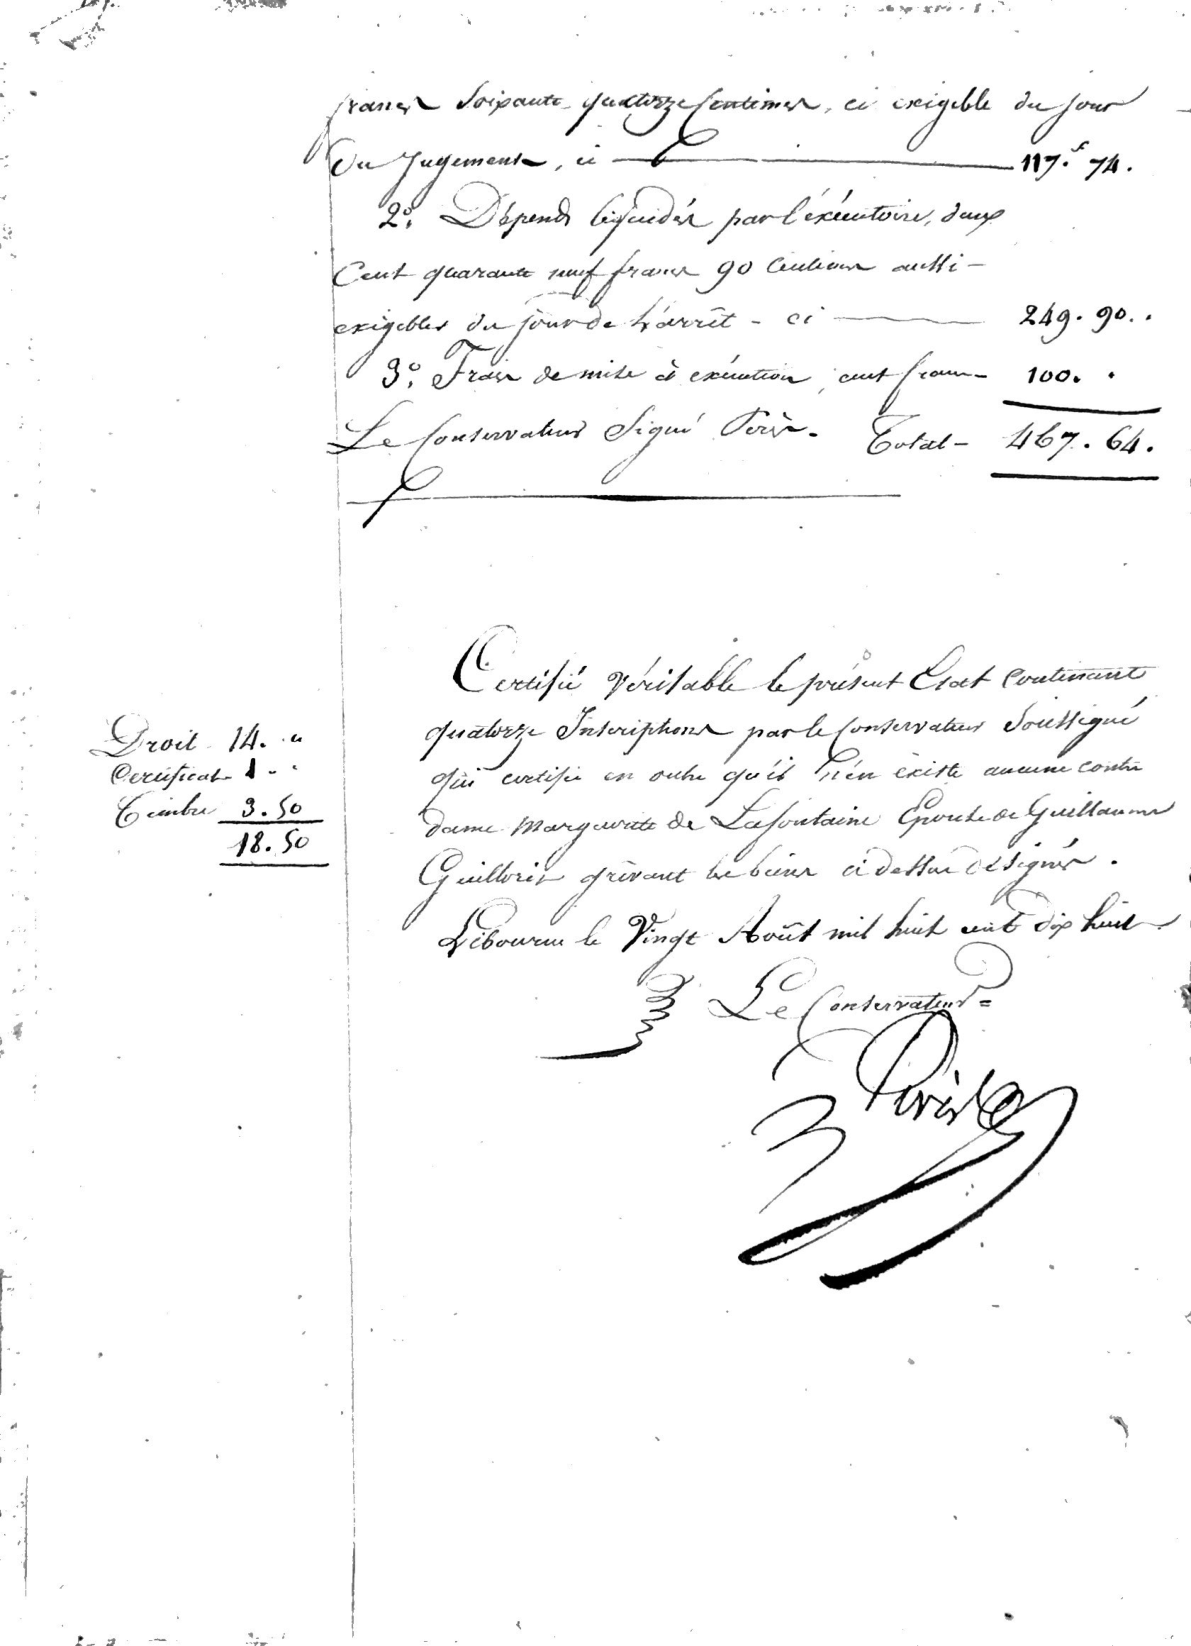 francs Soixante quatorze Centimes, ci exigible du jour
du Jugement, ci 117.f 74.
2°. Dépends liquidés par l'exécutoire, deux
Cent quarante neuf francs 90 Centimes aussi
exigibles du jour de L'arrêt - ci 249. 90..
3°. Frais de mise à exécution, cent francs 100. .
Le Conservateur Signé Total - 467. 64.
Certifié véritable le présent Etat Contenant
quatorze Inscriptions par le Conservateur Soussigné
qui certifie en outre qu'il n'en existe aucune contre
dame Margueritte de Lafontaine Epouse de Guillaume
Guilloris grèvant les biens ci dessus désignés.
Droit 14. "
Certificat 1 . .
Timbre 3. 50
18. 50
Libourne le Vingt Août mil huit cent dix huit
Le Conservateur =